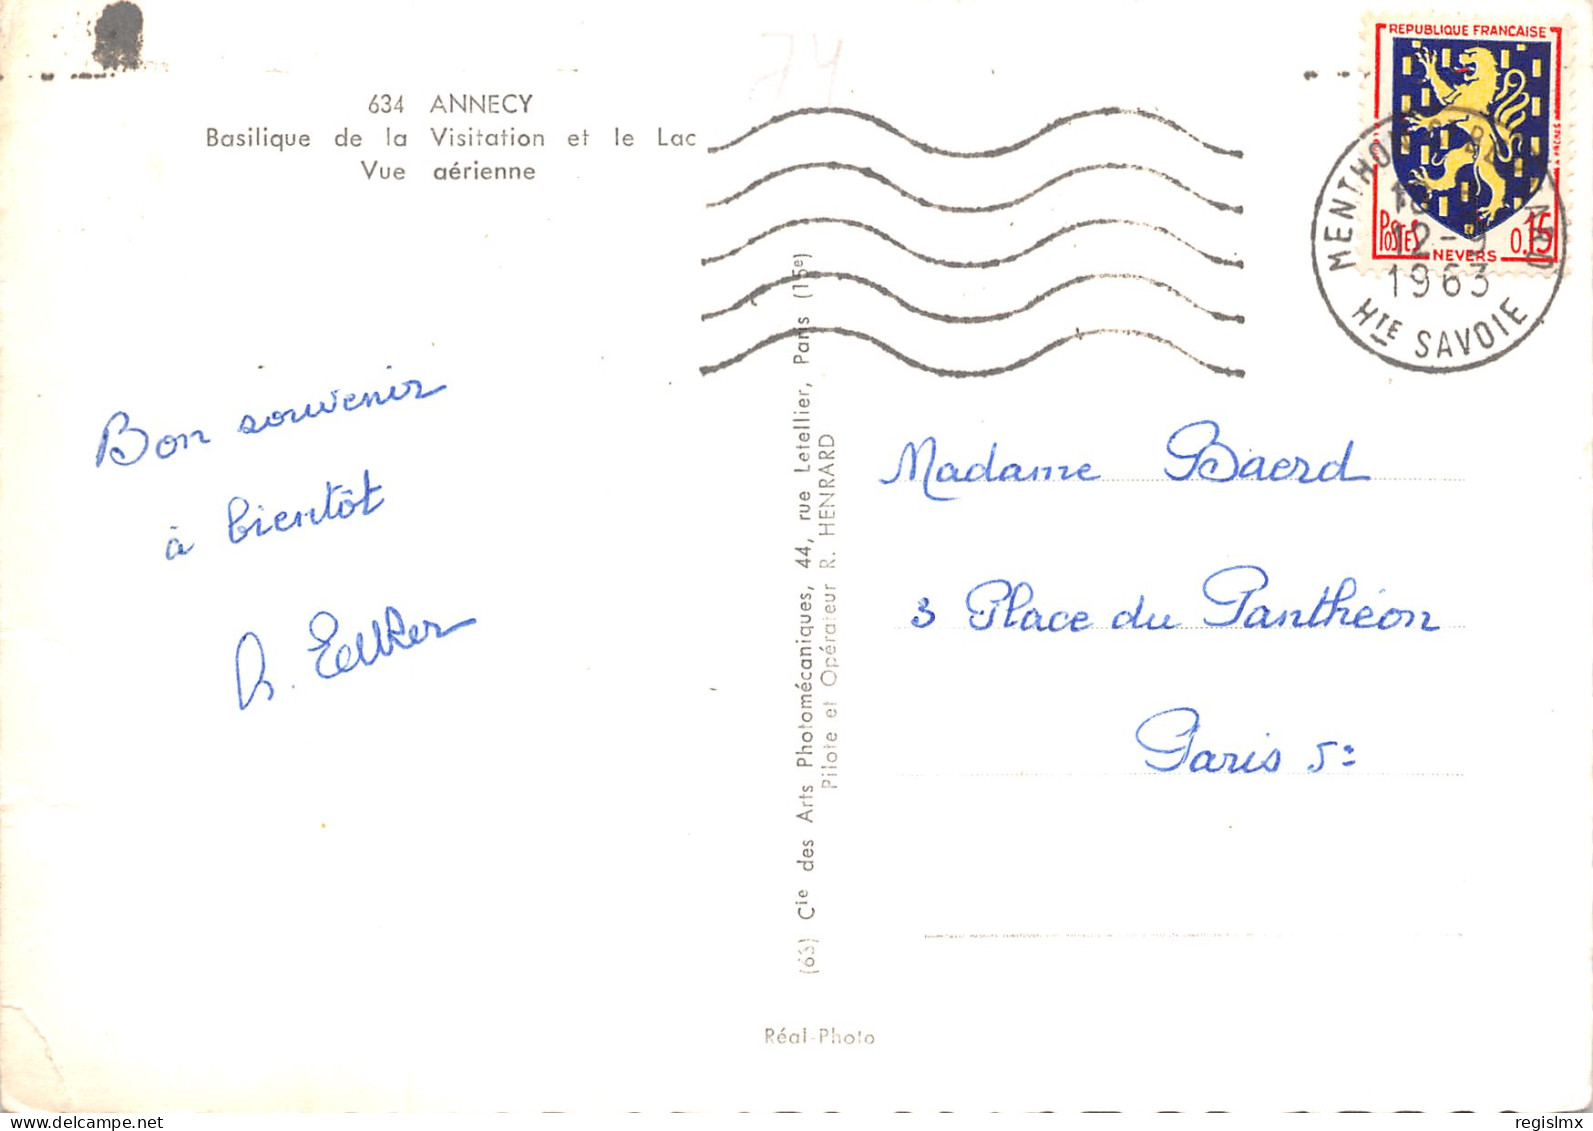 74
634 ANNECY
Basilique de la Visitation et le Lac
Vue aérienne
REPUBLIQUE FRANÇAISE
POSTES
0.15
NEVERS
MENTHON
12-9
1963
HTE SAVOIE
Bon souvenir
à bientôt
(63) Cie des Arts Photomécaniques, 44, rue Letellier, Paris (15e)
Pilote et Opérateur R. HENRARD
Madame Baerd
3 Place du Panthéon
Paris 5e
Réal-Photo
www.delcampe.net
regislmx